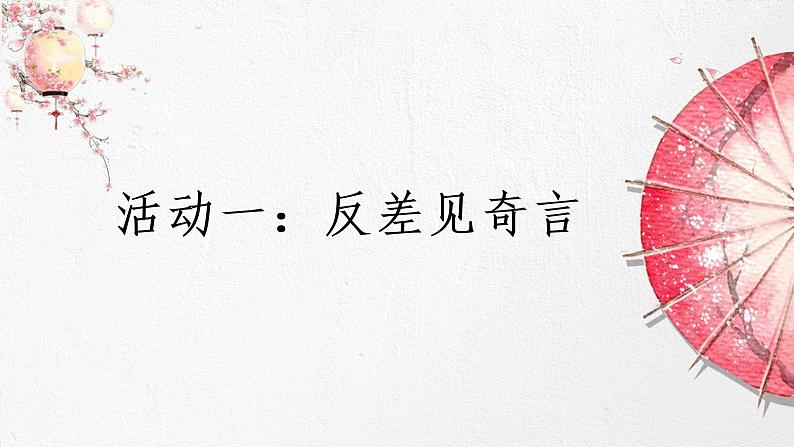 活动一：反差见奇言